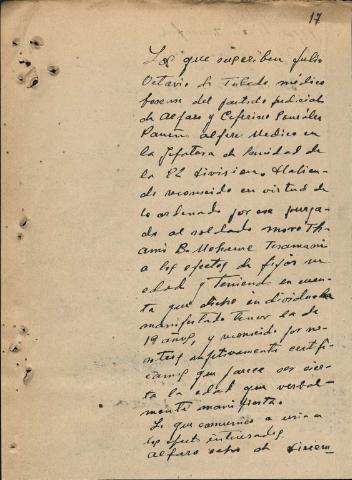 17
Los que suscriben Julio
Octavio de Toledo médico
forense del partido judicial
de Alfaro y Ceferino González
alferez Medico en
la Jefatura de Sanidad de
la división, Habien-
do reconocido en virtud de
lo ordenado por ese juzga-
do al soldado moro
a los efectos de fijar su
edad y teniendo en cuen-
ta que dicho individuo ha
manifestado tener la de
19 años, y reconocido por no-
sotros certifi-
camos que parece ser cier-
ta la edad que verbal-
mente manifiesta.
Lo que comunico a
los efectos interesados.
Alfaro ocho de diciem-